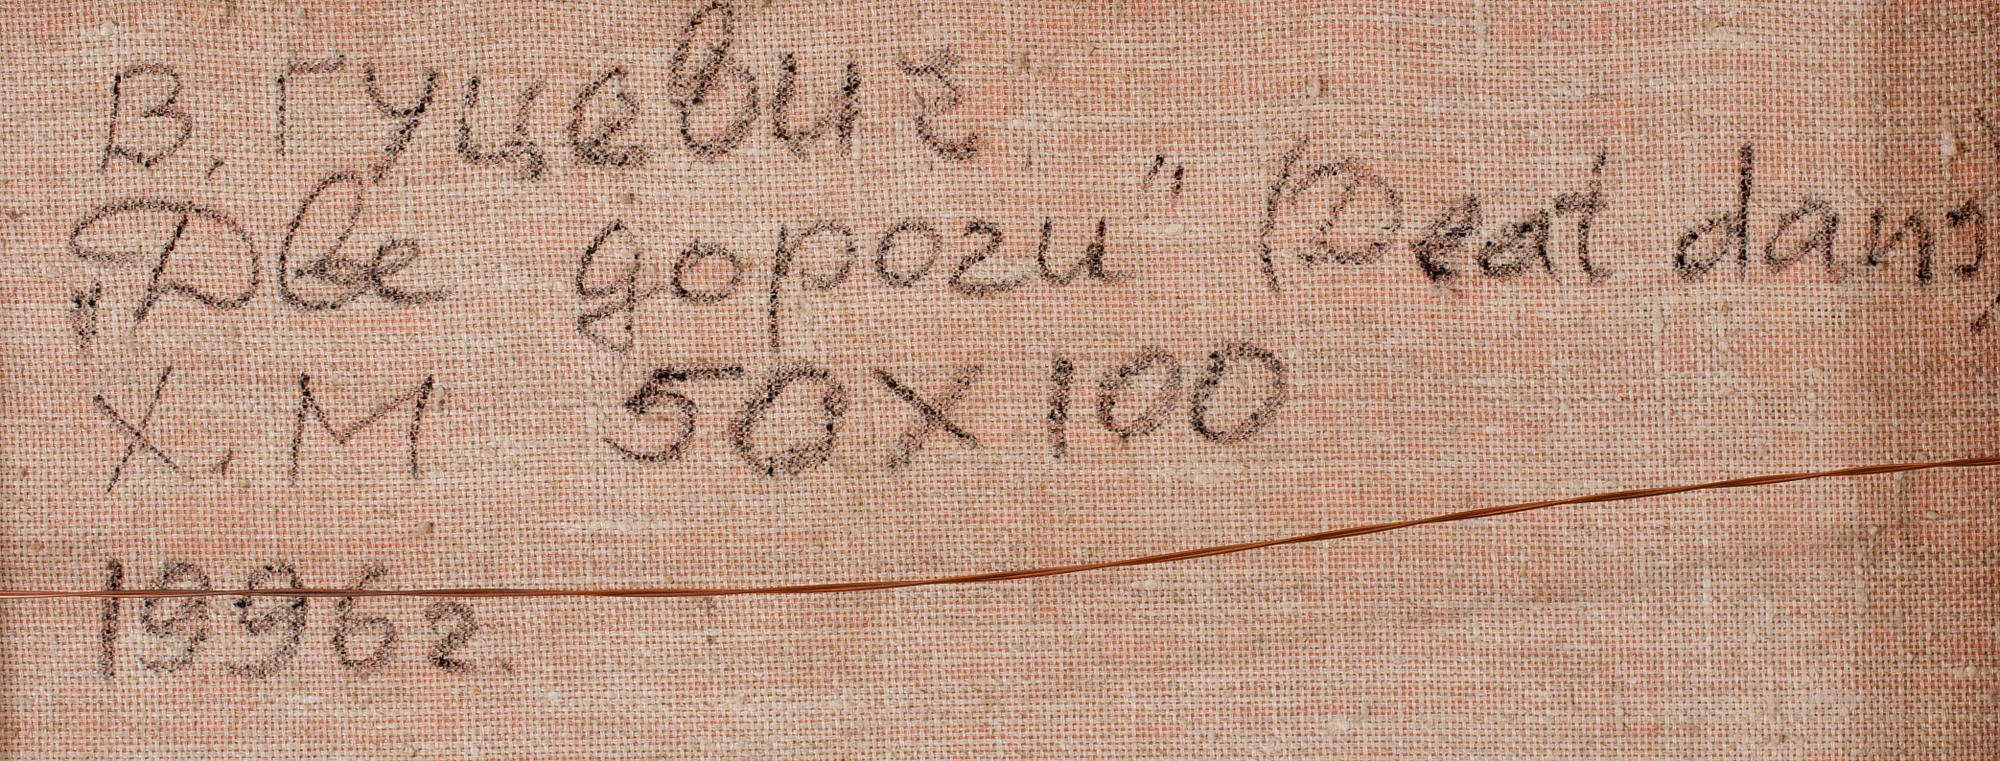 В. Гуцевич
"Две дороги" (Deat dans)
Х.М 50х100
1996г.